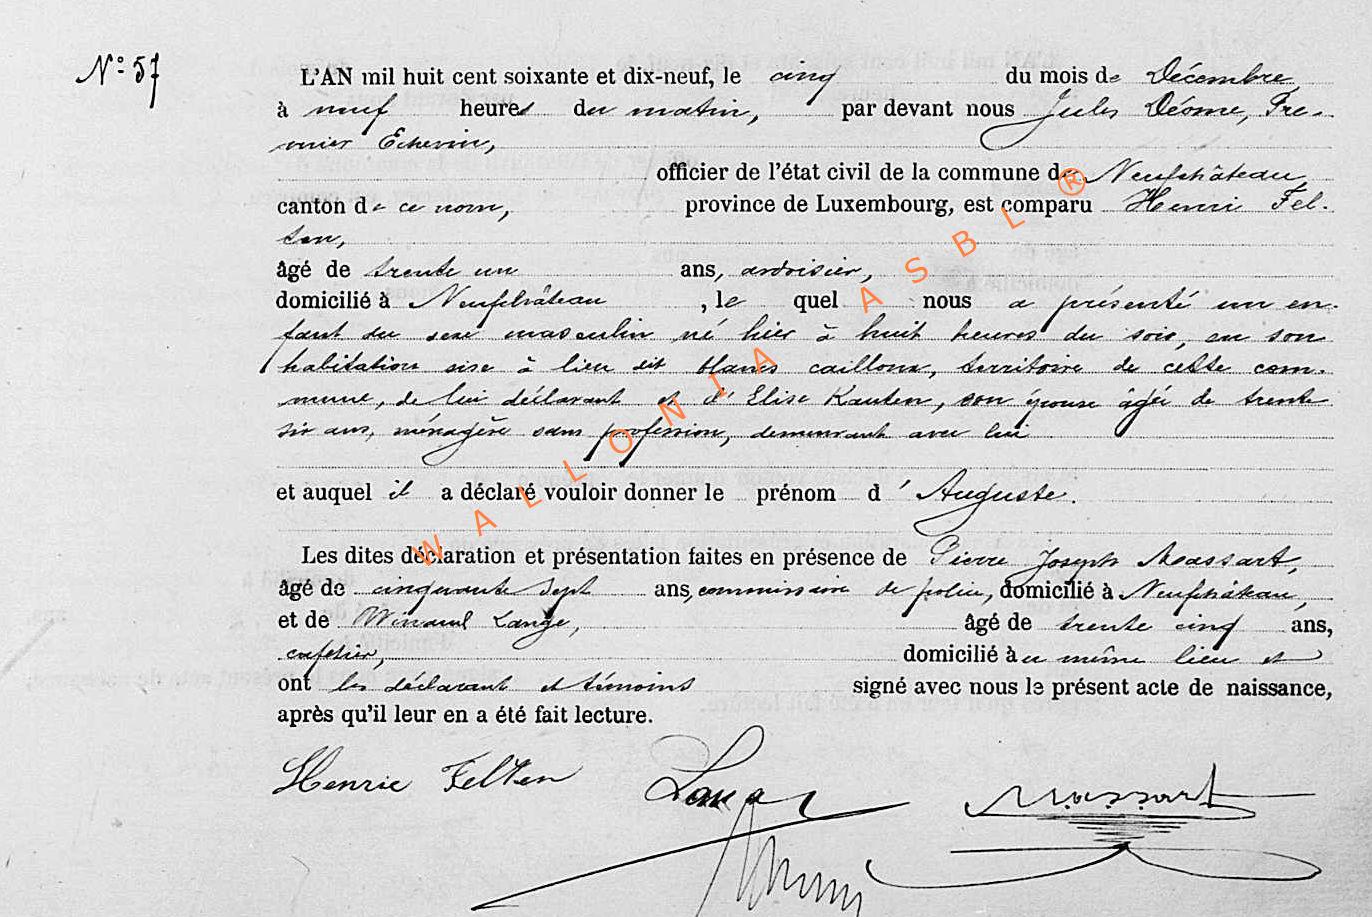 N° 57
L'AN mil huit cent soixante et dix-neuf, le cinq du mois de Décembre,
à neuf heures du matin, par devant nous Jules Déome, Pre-
mier Echevin,
officier de l'état civil de la commune de Neufchâteau
canton de ce nom, province de Luxembourg, est comparu Henri Fel-
ten,
âgé de trente un ans, ardoisier,
domicilié à Neufchâteau, le quel nous a présenté un en-
fant du sexe masculin né hier à huit heures du soir, en son
habitation sise à lieu dit blancs cailloux, territoire de cette com-
mune, de lui déclarant et d'Elise Kauten, son épouse âgée de trente
six ans, ménagère sans profession, demeurant avec lui
et auquel il a déclaré vouloir donner le prénom d'Auguste.
Les dites déclaration et présentation faites en présence de Pierre Joseph Massart,
âgé de cinquante sept ans, commissaire de police, domicilié à Neufchâteau,
et de Winand Lange, âgé de trente cinq ans,
cafetier, domicilié au même lieu et
ont les déclarant et témoins signé avec nous le présent acte de naissance,
après qu'il leur en a été fait lecture.
Henrie Felten Lange Massart
WALLONIA ASBL ®